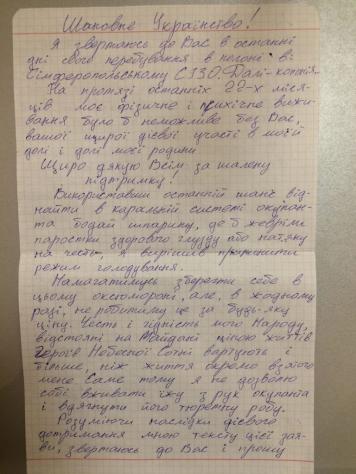 Шановне Українство!
Я звертаюсь до Вас в останні
дні свого перебування в полоні в
Сімферопольському СІЗО. Далі - колонія.
На протязі останніх 22-х міся-
ців моє фізичне і психічне вижи-
вання було б неможливе без Вас,
вашої щирої дієвої участі в моїй
долі і долі моєї родини
Щиро дякую Всім за шалену
підтримку!
Використавши останній шанс від-
найти в каральній системі окупан-
та бодай шпарину, де б жевріли
паростки здорового глузду або натяку
на честь, я вирішив припинити
режим голодування.
Намагатимусь зберегти себе в
цьому оксюмороні, але, в жодному
разі, не робитиму це за будь-яку
ціну. Честь і гідність мого Народу,
відстояні на Майдані ціною життів
Героїв Небесної Сотні вартують і
більше, ніж життя окремо взятого
мене. Саме тому я не дозволю
собі вживати їжу з рук окупанта
і вдягнути його тюремну робу.
Розуміючи наслідки дієвого
дотримання мною тексту цієї зая-
ви, звертаюсь до Вас і прошу